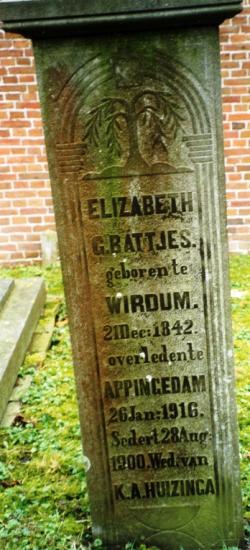 ELIZABETH
G. BATTJES.
geboren te
WIRDUM.
21 Dec: 1842.
overleden te
APPINGEDAM
26 Jan: 1916.
Sedert 28 Aug:
1900. Wed: van
K.A. HUIZINGA